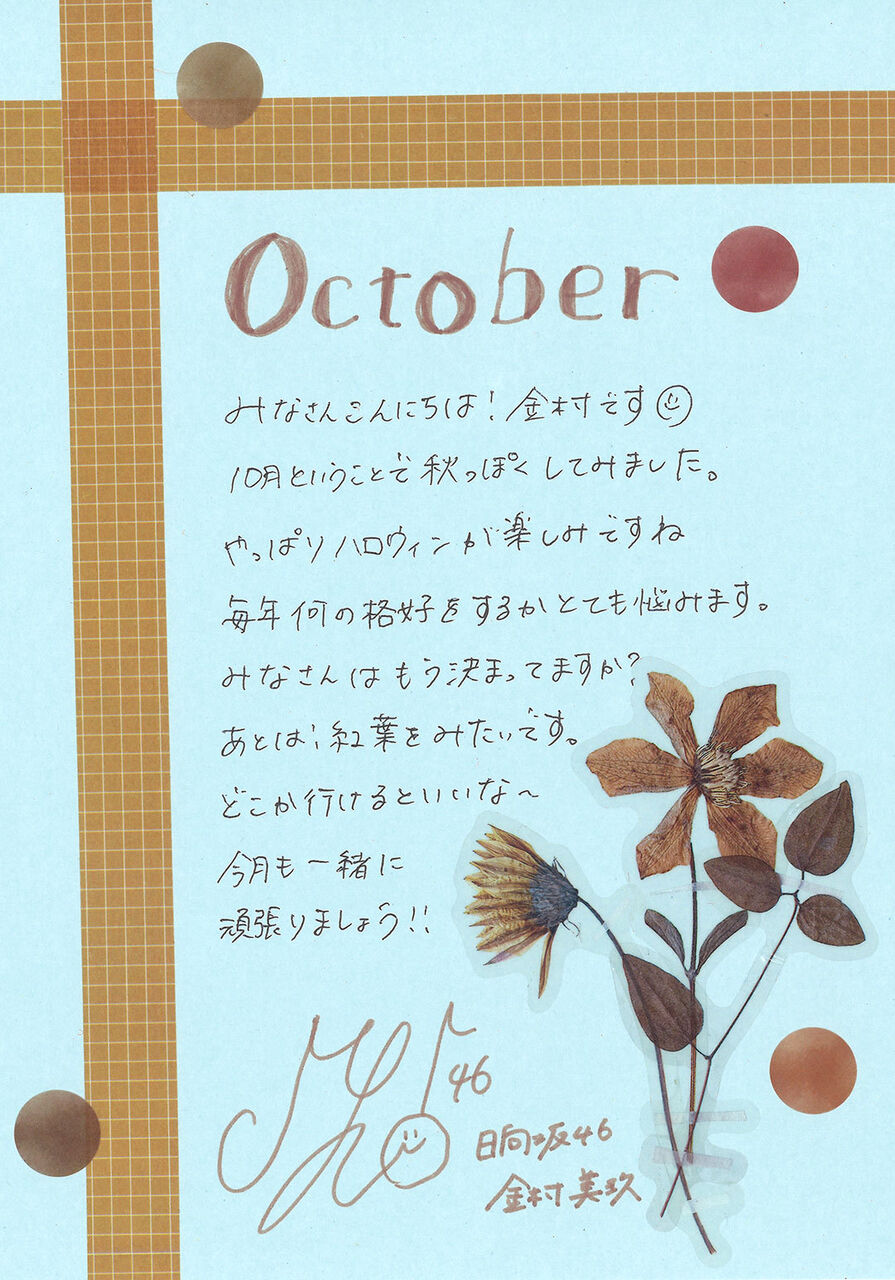 October
みなさんこんにちは!金村です
10月ということで秋っぽくしてみました。
やっぱりハロウィンが楽しみですね
毎年何の格好をするかとても悩みます。
みなさんはもう決まってますか?
あとは、紅葉をみたいです。
どこか行けるといいな〜
今月も一緒に
頑張りましょう!!
46
日向坂46
金村美玖